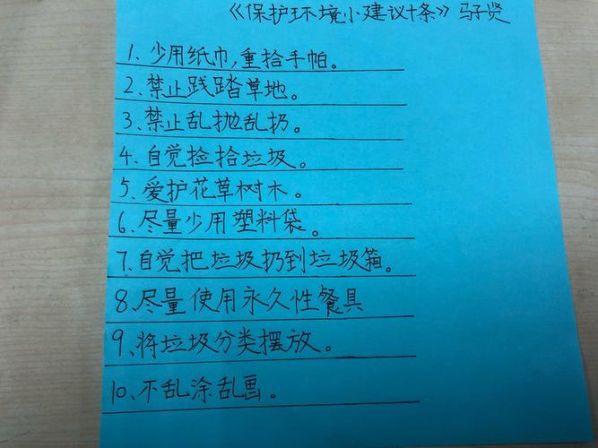 《保护环境小建议十条》马子贤
1、少用纸巾,重拾手帕。
2、禁止践踏草地。
3、禁止乱抛乱扔。
4、自觉捡拾垃圾。
5、爱护花草树木。
6、尽量少用塑料袋。
7、自觉把垃圾扔到垃圾箱。
8、尽量使用永久性餐具
9、将垃圾分类摆放。
10、不乱涂乱画。